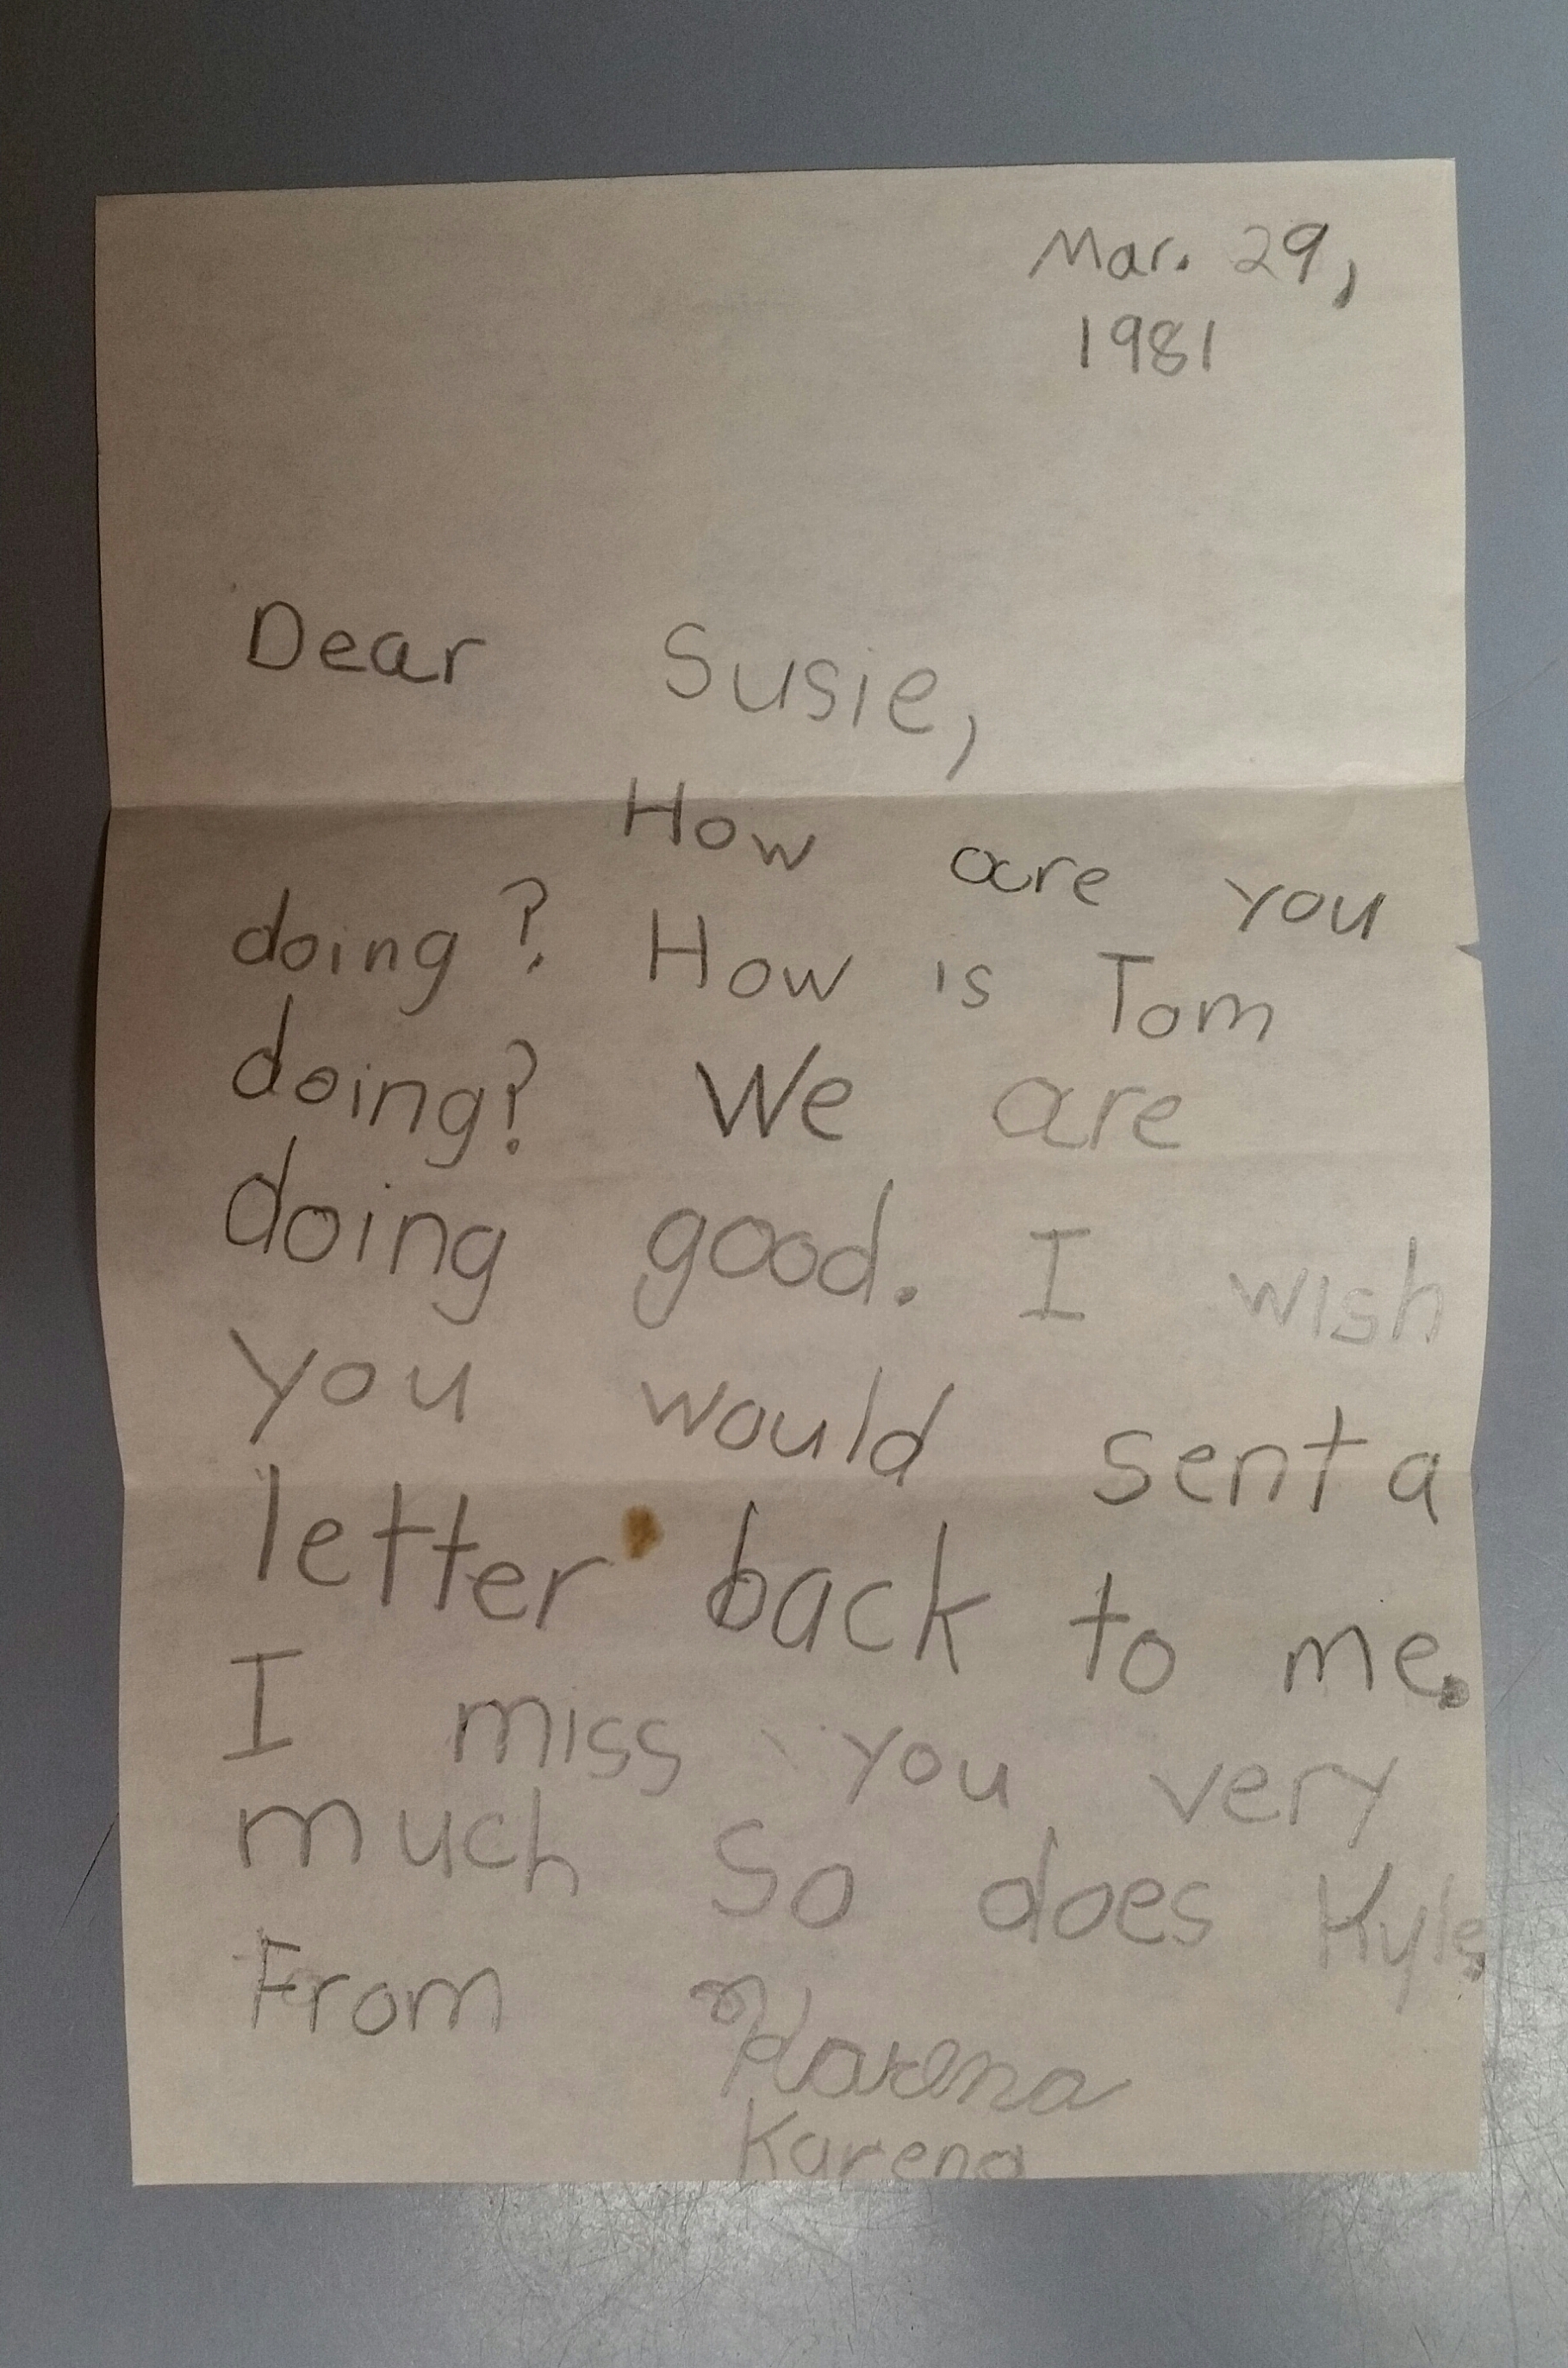 Mar. 29,
1981
Dear Susie,
How are you
doing? How is Tom
doing? We are
doing good. I wish
you would sent a
letter back to me.
I miss you very
much So does Kyle.
From Karena
Karena